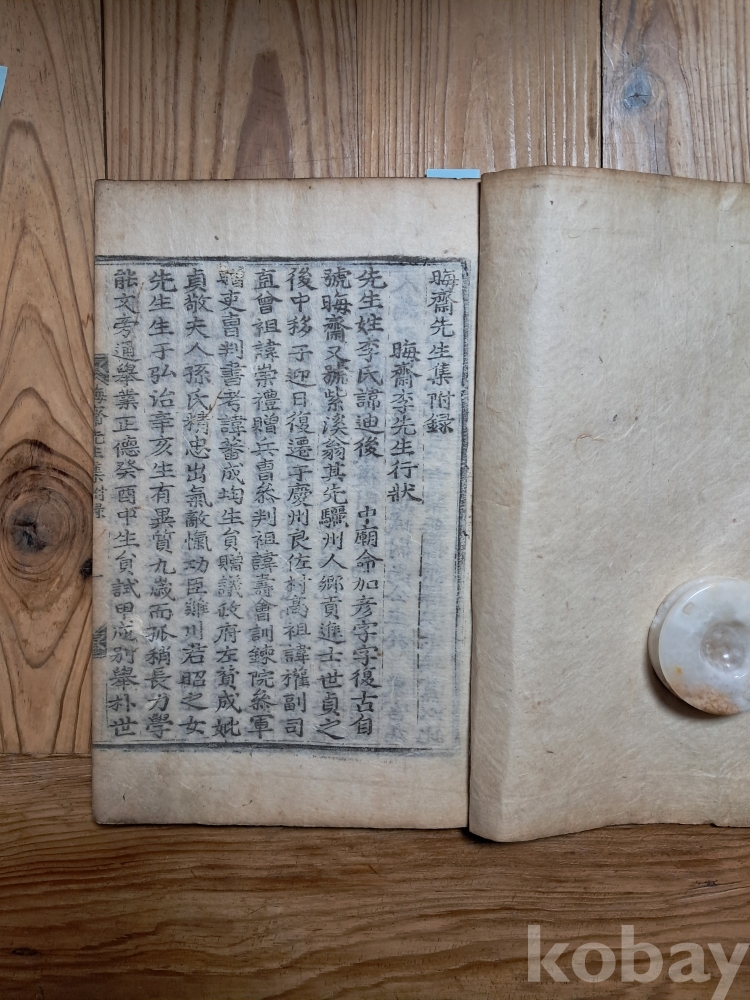 晦齋先生集附錄
晦齋李先生行狀
先生姓李氏諱迪後 中廟命加彦字字復古自
號晦齋又號紫溪翁其先驪州人鄕貢進士世貞之
後中移于迎日復遷于慶州良佐村高祖諱權副司
直曾祖諱崇禮贈兵曹參判祖諱壽會訓鍊院參軍
贈吏曹判書考諱蕃成均生員贈議政府左贊成妣
貞敬夫人孫氏精忠出氣敵愾功臣雞川君昭之女
先生生于弘治辛亥生有異質九歲而孤稍長力學
能文旁通擧業正德癸酉中生員試甲戌別擧朴世
晦齋先生集附錄 一
kobay